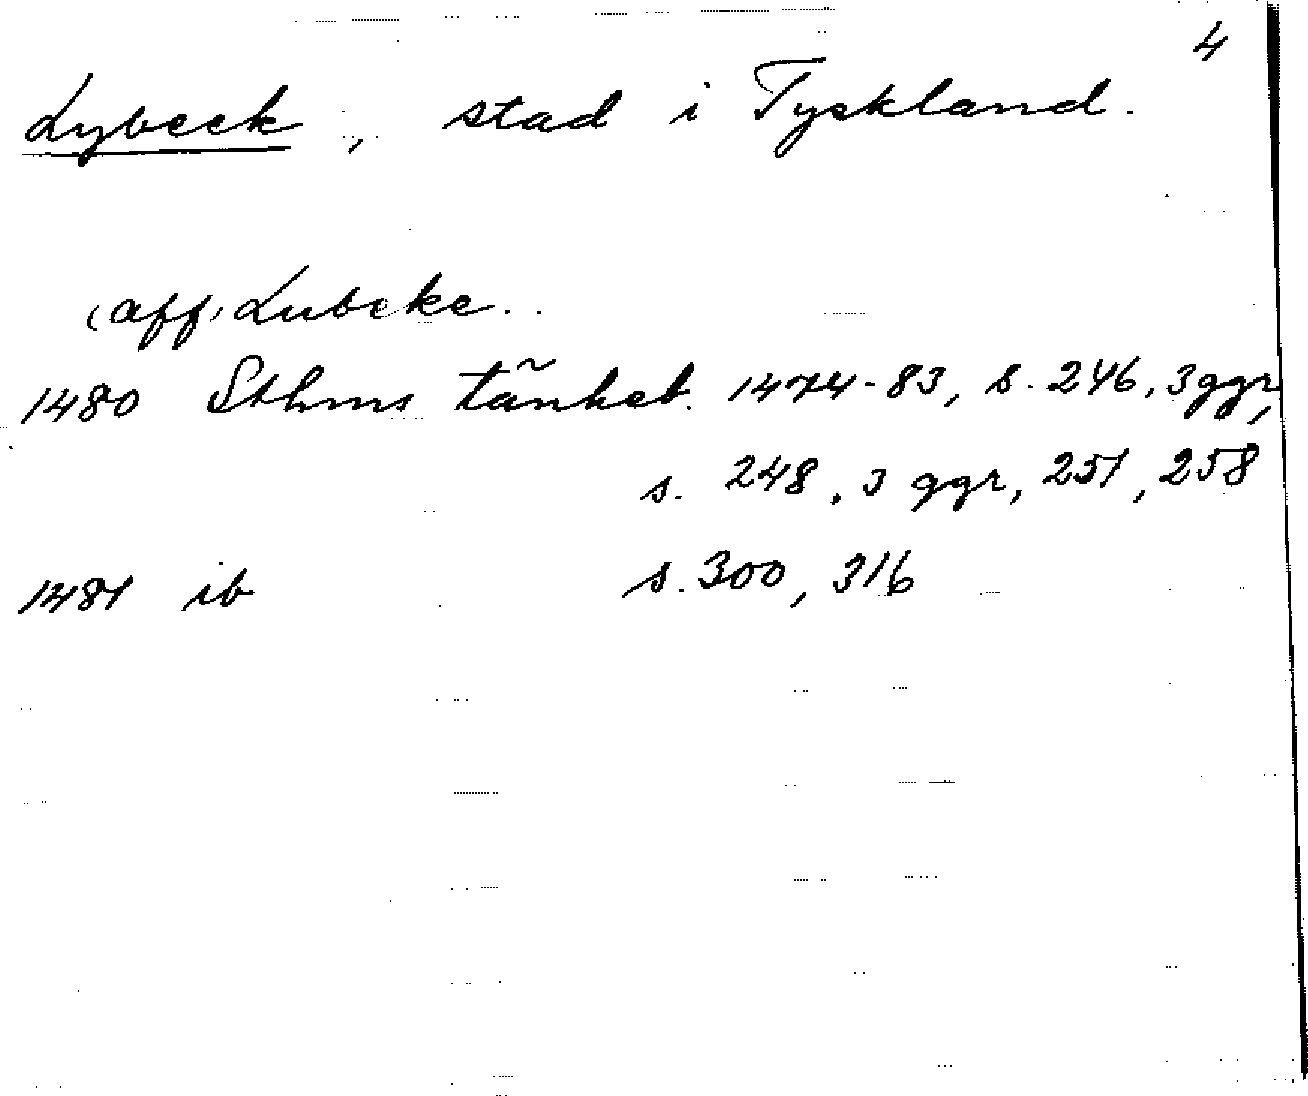 4
Lybeck, stad i Tyskland.
(aff) Lubeke..
1480 Sthms tänkeb. 1474-83, s. 246, 3 ggr,
s. 248, 3 ggr, 251, 258
1481 ib s. 300, 316